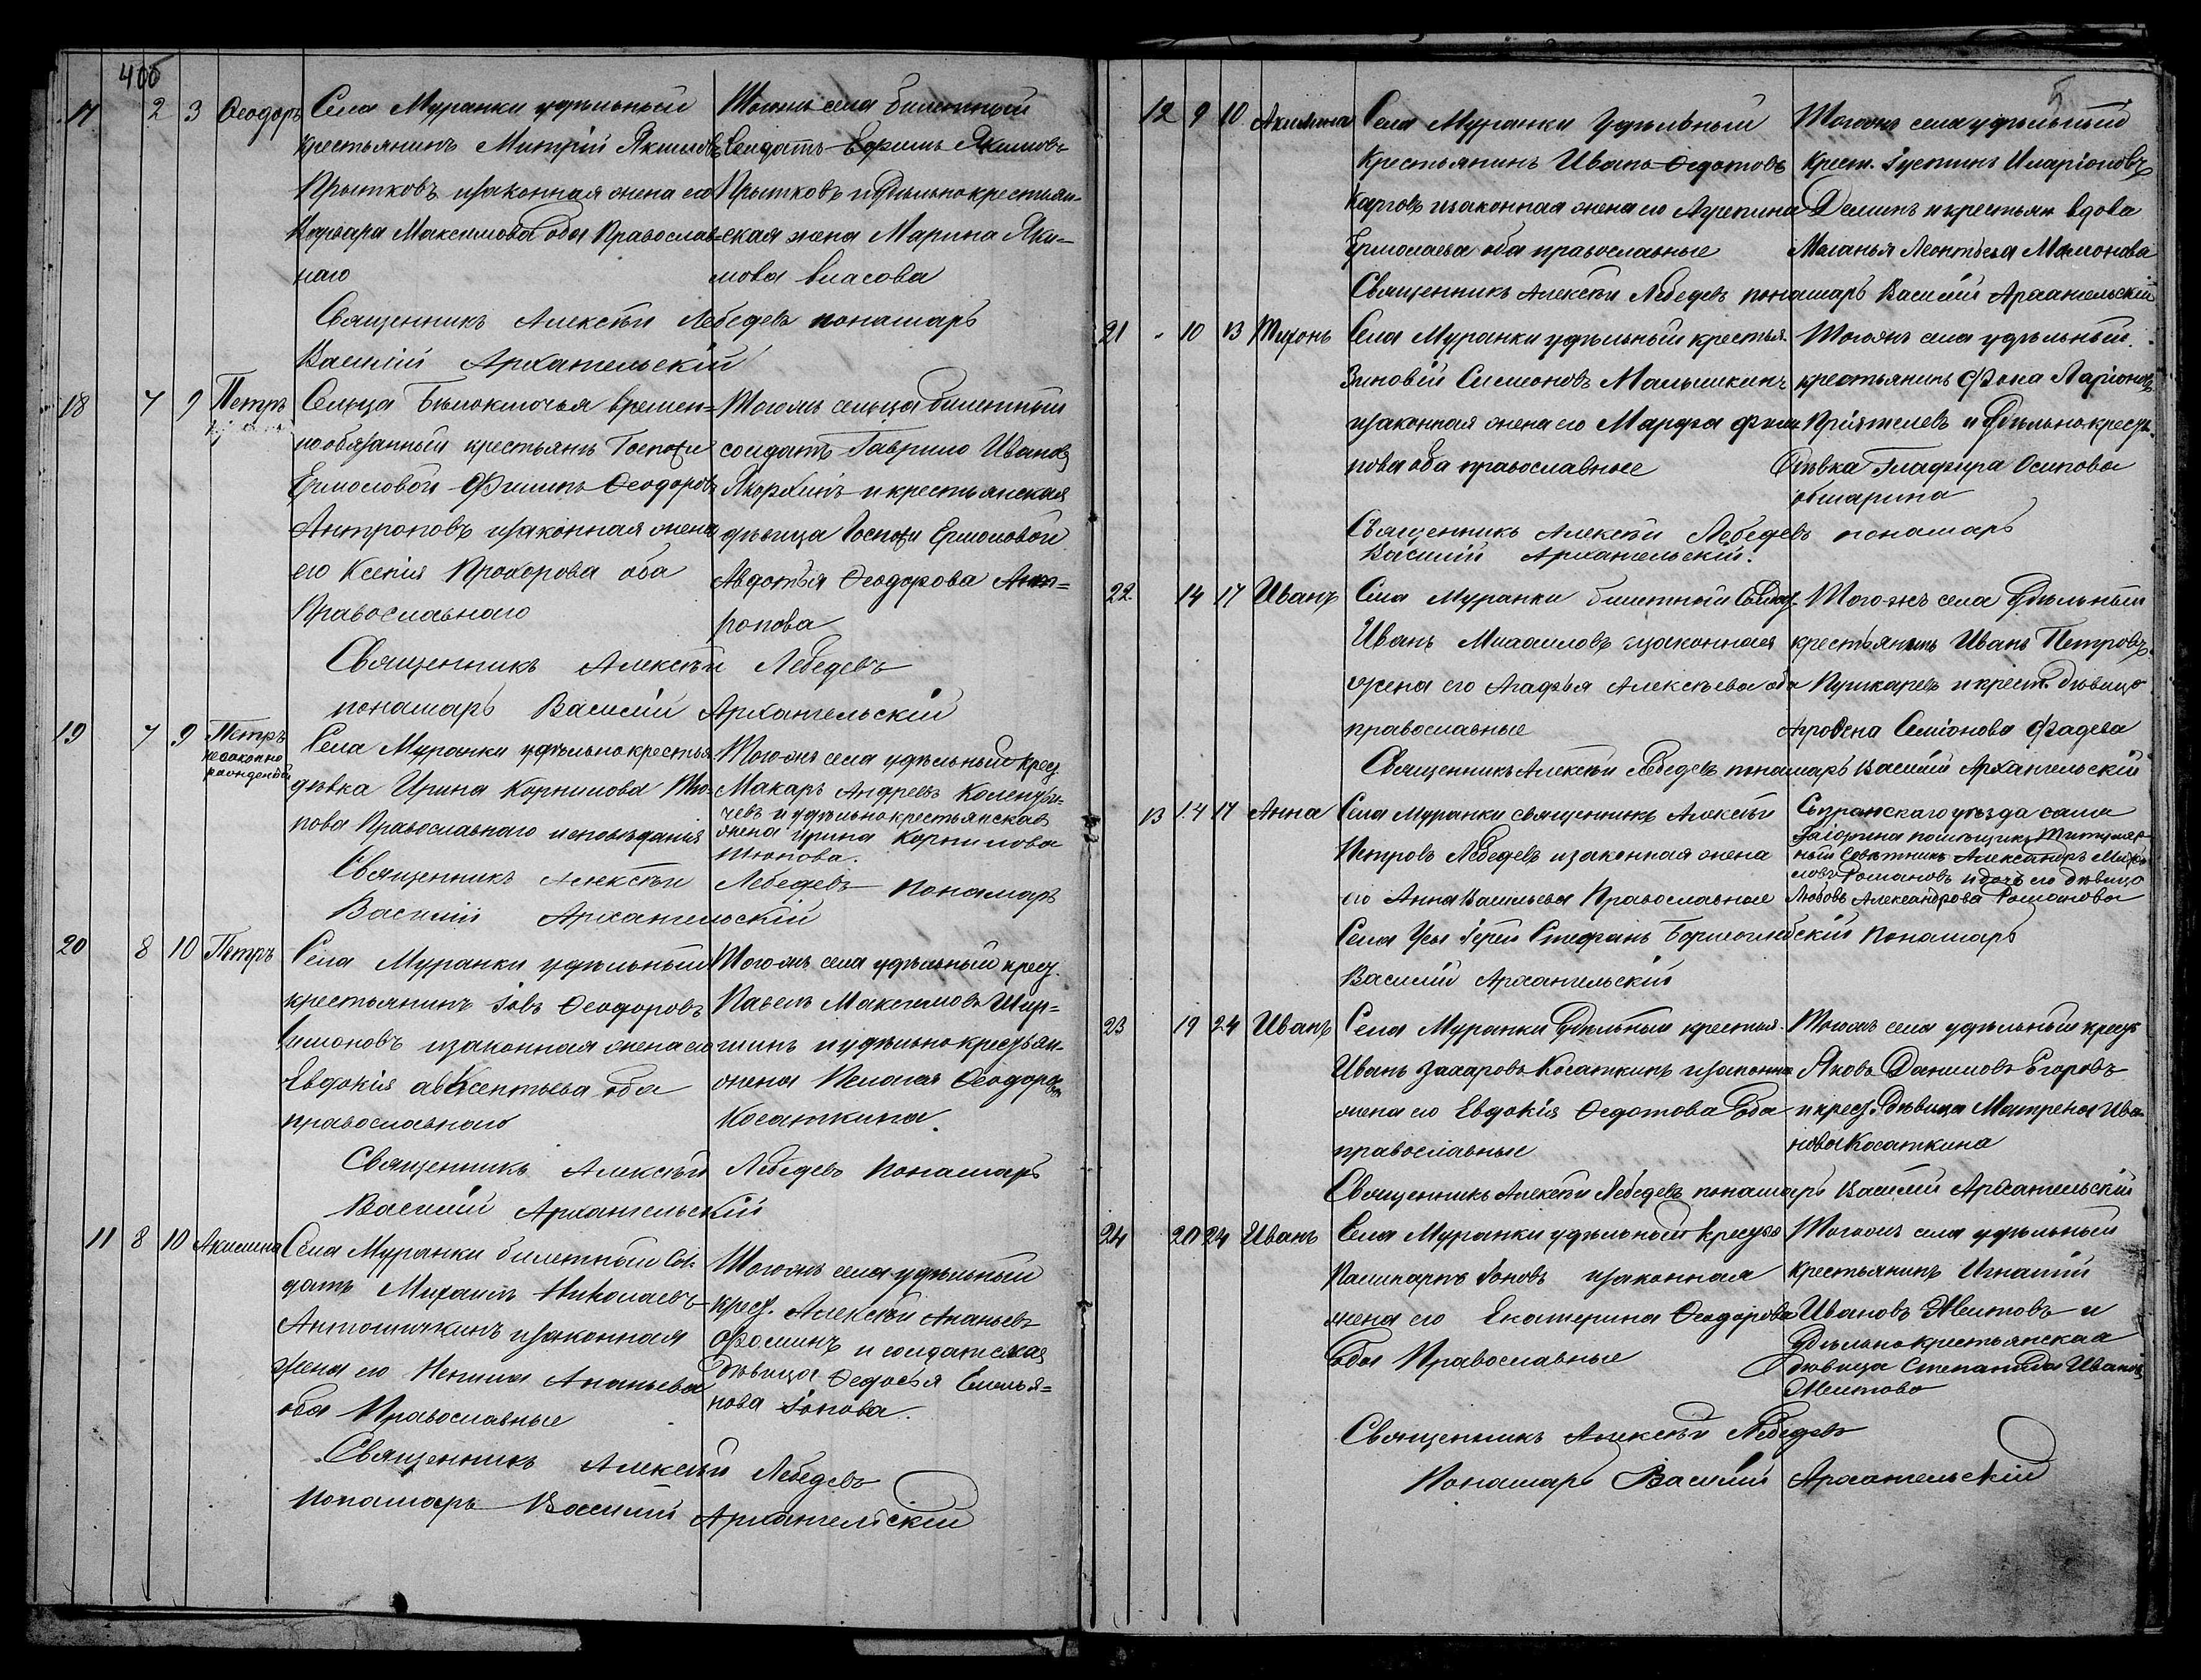 400
17 2 3 Ѳеодоръ
Села Муранки удѣльный
крестьянинъ Митрій Якимовъ
Прытковъ и законная жена его
Варвара Максимова оба Православ-
наго
Тогожъ села билетный
Солдатъ Ефимъ Якимовъ
Прытковъ и Удѣльнокрестьян-
ская жена Марина Яки-
мова Власова
Священникъ Алексѣй Лебедевъ пономарь
Василій Архангельскій
18 7 9 Петръ
Сельца Бѣлоключья времен-
нообязанный крестьянъ Госпожи
Ермоловой Филипъ Ѳеодоровъ
Антроповъ и законная жена
его Ксенія Прохорова оба
Православнаго
Тогожъ сельца билетный
солдатъ Гаврило Ивановъ
и крестьянская
дѣвица Госпожи Ермоловой
Авдотья Ѳеодорова Ант-
ропова
Священникъ Алексѣй Лебедевъ
пономарь Василій Архангельскій
19 7 9 Петръ
незаконно
рожденный
Села Муранки удѣльнокрестья
дѣвка Ирина Корнилова Тю-
пова Православнаго исповѣданія
Тогожъ села удѣльный крес.
Макаръ Андреевъ
чевъ и удѣльнокрестьянская
жена Ирина Корнилова
Тюпова.
Священникъ Алексѣй Лебедевъ Пономарь
Василій Архангельскій
20 8 10 Петръ
Села Муранки удѣльный
крестьянинъ Іовъ Ѳеодоровъ
Симоновъ и законная жена его
Евдокія Авксентьева оба
православнаго
Тогожъ села удѣльный крес.
Павелъ Максимовъ Шир-
шинъ и удѣльнокрестьян-
жена Пелагея Ѳеодорова
Косаткина.
Священникъ Алексѣй Лебедевъ Пономарь
Василій Архангельскій
11 8 10 Акилина
Села Муранки билетный Сол-
датъ Михаилъ Николаевъ
Антошичкинъ и законная
жена его Ненила Ананьева
оба Православные
Тогожъ села удѣльный
крес. Алексѣй Ананьевъ
Ѳоминъ и солдатская
дѣвица Ѳедосья Емелья-
нова Іонова.
Священникъ Алексѣй Лебедевъ
Пономарь Василій Архангельскій
5
12 9 10 Акилина
Села Муранки Удѣльный
Крестьянинъ Иванъ Ѳедотовъ
Карповъ и законная жена его Агрепина
Ермолаева оба православные
Тогожъ села удѣльный
Крест. Іустинъ Иларіоновъ
Деминъ и крестьян вдова
Маланья Леонтьева Мамонова
Священникъ Алексѣй Лебедевъ пономарь Василій Архангельскій
21 - 10 13 Тихонъ
Села Муранки удѣльный крестья.
Зиновій Симоновъ Малышкинъ
и законная жена его Марфа Фили
пова оба православные
Тогожъ села удѣльный.
крестьянинъ Фока Ларіоновъ
Пріятелевъ и Удѣльнокресть.
дѣвка Глафира Осипова
Священникъ Алексѣй Лебедевъ пономарь
Василій Архангельскій.
22 14 17 Иванъ
Села Муранки билетный Солдат.
Иванъ Михаиловъ и законная
жена его Агафья Алексѣева оба
православные
Того-жъ села Удѣльный
крестьянинъ Иванъ Петровъ
Пушкаревъ и крест. дѣвица
Семіонова Фадеева
Священникъ Алексѣй Лебедевъ пономарь Василій Архангельскій
13 14 17 Анна
Села Муранки священникъ Алексѣй
Петровъ Лебедевъ и законная жена
его Анна Васильева Православные
Сызранскаго уѣзда села
помѣщикъ Титуляр-
ный Совѣтникъ Александръ Михай
ловъ Романовъ и дочь его дѣвица
Любовь Александрова Романова
Села Усы Іерей Стефанъ Борисоглѣбскій Пономарь
Василій Архангельскій
23 19 24 Иванъ
Села Муранки Удѣльный крестья.
Иванъ Захаровъ Косаткинъ и законна
жена его Евдокія Ѳедотова Оба
православные
Тогожъ села удѣльный крест
Яковъ Даниловъ Егоровъ
и крес. Дѣвица Матрена Ива
нова Косаткина
Священникъ Алексѣй Лебедевъ пономарь Василій Архангельскій
24 20 24 Иванъ
Села Муранки удѣльной Крестья
Іоновъ и законная
жена его Екатерина Ѳеодорова
Оба Православные
Тогожъ села удѣльный
крестьянинъ Игнатій
Ивановъ Жентовъ и
Удѣльнокрестьянская
дѣвица Степанида Иванов
Жентова
Священникъ Алексѣй Лебедевъ
Пономарь Василій Архангельскій